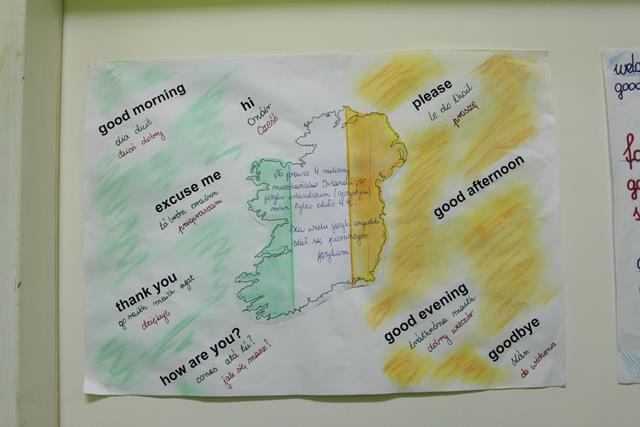 good morning
dia duit
dzień dobry
hi
Onóir
Cześć
please
le do thoil
proszę
excuse me
przepraszam
good afternoon
Na prawie 4 miliony
mieszkańców Irlandii, w
języku irlandzkim (ojczystym)
mówi tylko około 4%.
Dla wielu język angielski
stał się pierwszym
językiem
thank you
go raibh maith agat.
dziękuję
how are you?
conas atá tú?
jak się masz?
good evening
tráthnóna maith
dobry wieczór
goodbye
slán
do widzenia
welc
good